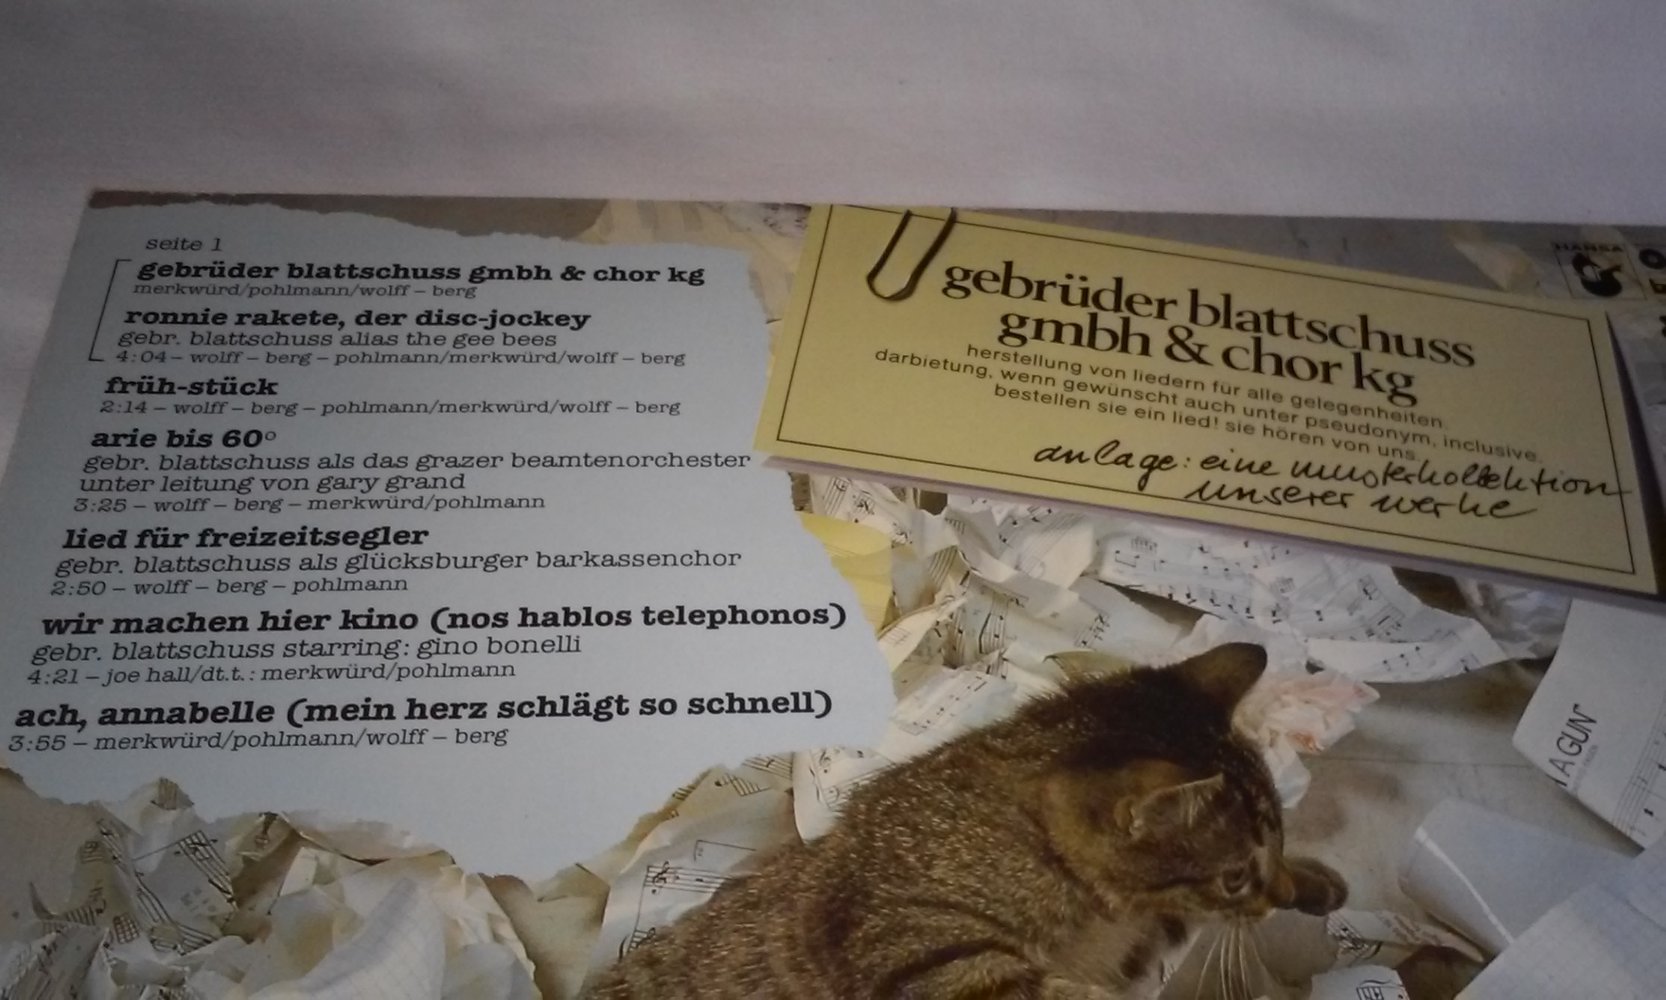 seite 1
gebrüder blattschuss gmbh & chor kg
merkwürd/pohlmann/wolff – berg
ronnie rakete, der disc-jockey
gebr. blattschuss alias the gee bees
4:04 – wolff – berg – pohlmann/merkwürd/wolff – berg
früh-stück
2:14 – wolff – berg – pohlmann/merkwürd/wolff – berg
arie bis 60°
gebr. blattschuss als das grazer beamtenorchester
unter leitung von gary grand
3:25 – wolff – berg – merkwürd/pohlmann
lied für freizeitsegler
gebr. blattschuss als glücksburger barkassenchor
2:50 – wolff – berg – pohlmann
wir machen hier kino (nos hablos telephonos)
gebr. blattschuss starring: gino bonelli
4:21 – joe hall/dt.t.: merkwürd/pohlmann
ach, annabelle (mein herz schlägt so schnell)
3:55 – merkwürd/pohlmann/wolff – berg
gebrüder blattschuss
gmbh & chor kg
herstellung von liedern für alle gelegenheiten.
darbietung, wenn gewünscht auch unter pseudonym, inclusive.
bestellen sie ein lied! sie hören von uns.
anlage: eine musterkollektion
unserer werke
HANSA
AGUN